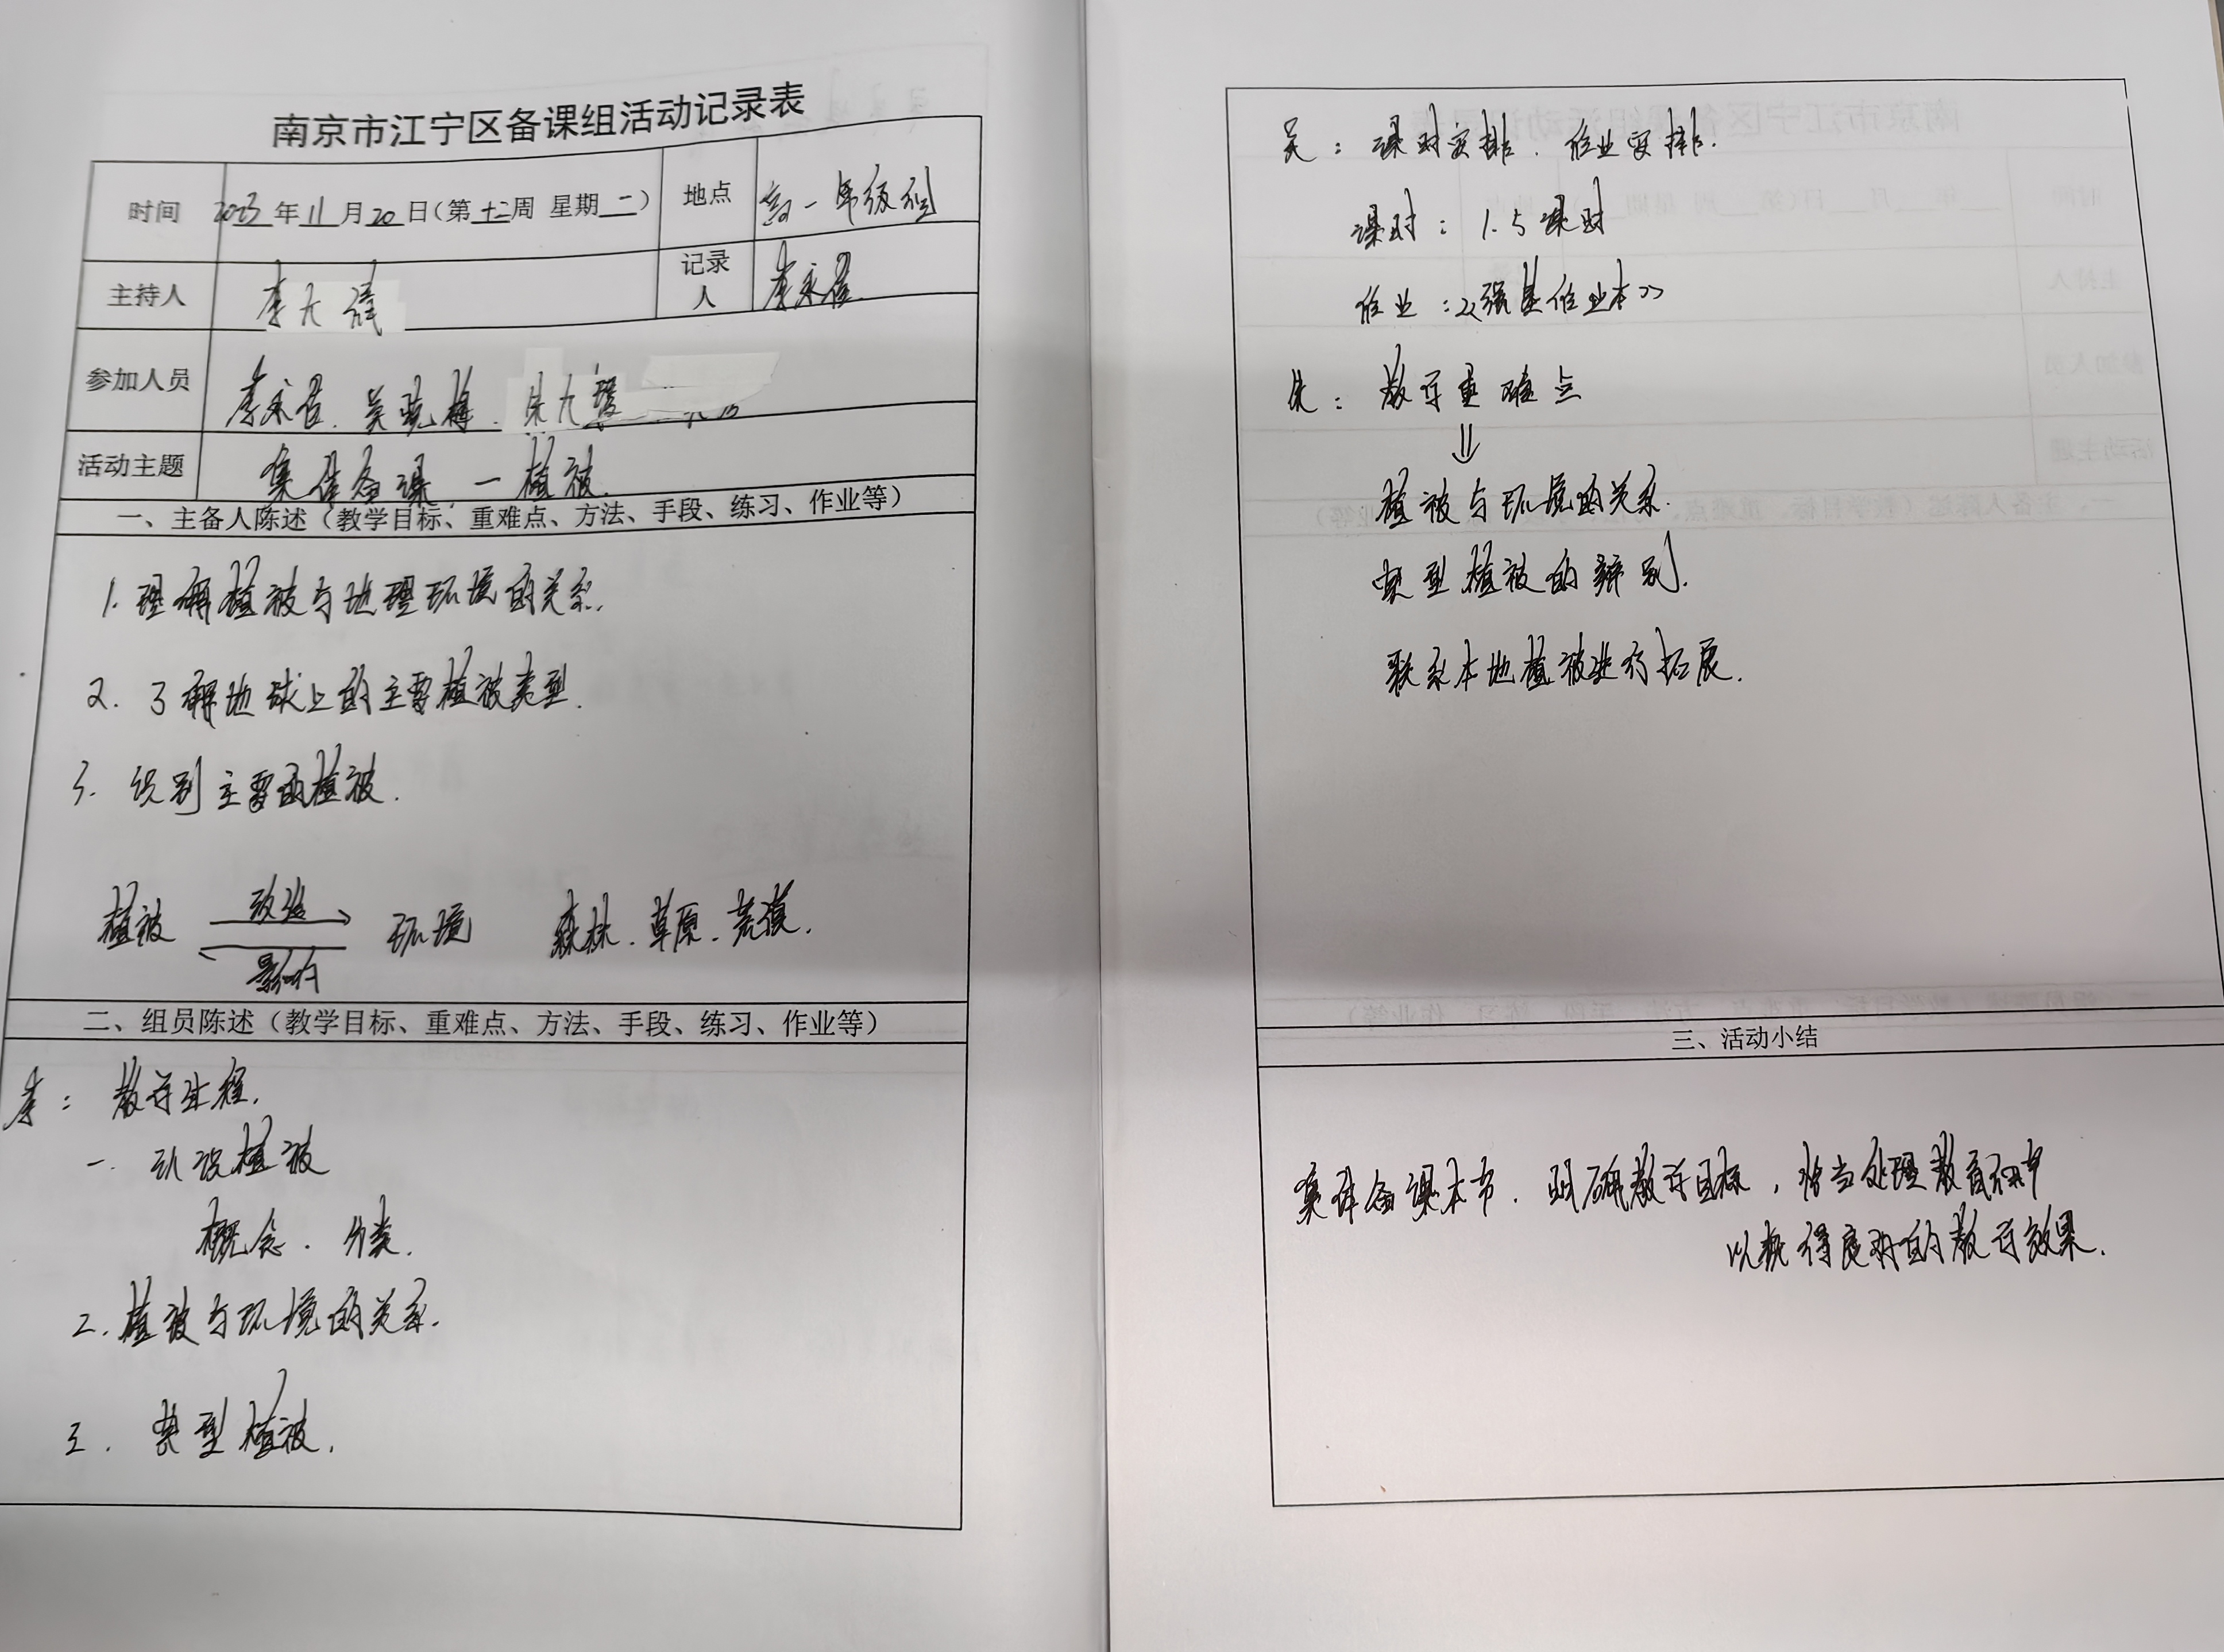 南京市江宁区备课组活动记录表
时间 2023年11月20日(第十二周 星期二) 地点 高一年级组
主持人 李大 记录人 李永
参加人员 李永 吴晓梅. 朱大
活动主题 集体备课 — 植被.
一、主备人陈述(教学目标、重难点、方法、手段、练习、作业等)
1. 理解植被与地理环境的关系.
2. 了解地球上的主要植被类型.
3. 识别主要的植被.
改造
植被 环境 森林、草原、荒漠.
影响
二、组员陈述(教学目标、重难点、方法、手段、练习、作业等)
李: 教学过程.
一. 认识植被
概念. 分类.
二. 植被与环境的关系.
三. 典型植被.
吴: 课时安排. 作业安排.
课时: 1.5课时
作业:《强基作业本》
朱: 教学重难点
⇓
植被与环境的关系.
典型植被的辨别.
联系本地植被进行拓展.
三、活动小结
集体备课本节. 明确教学目标, 恰当处理教育
以获得良好的教学效果.